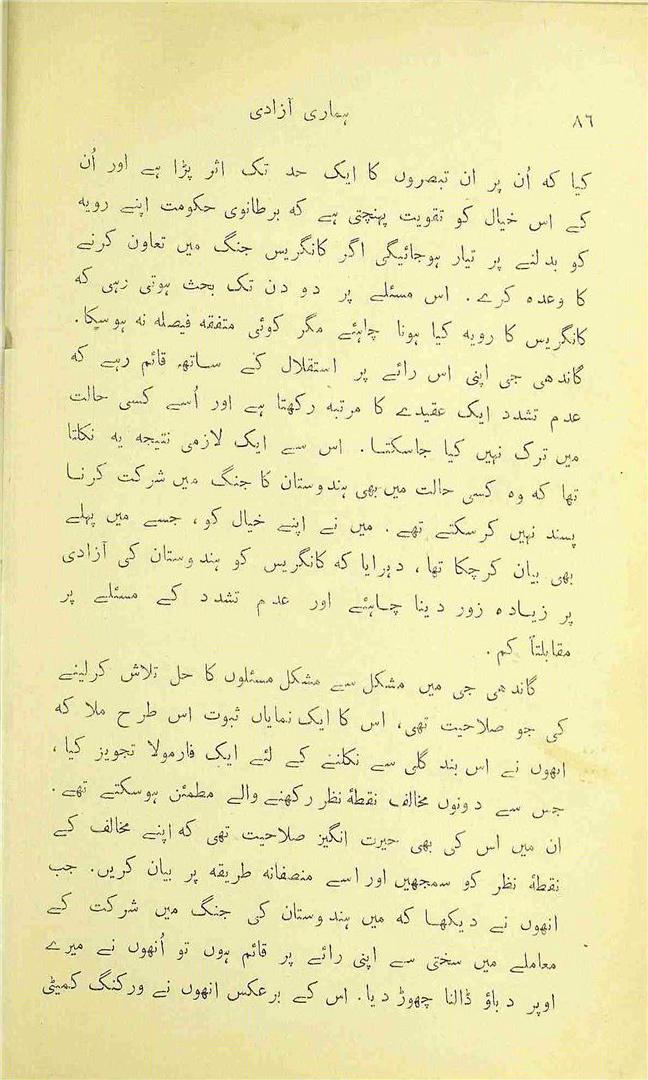 ہماری آزادی
٨٦
کیا کہ اُن پر ان تبصروں کا ایک حد تک اثر پڑا ہے اور اُن
کے اس خیال کو تقویت پہنچتی ہے کہ برطانوی حکومت اپنے رویہ
کو بدلنے پر تیار ہوجائیگی اگر کانگریس جنگ میں تعاون کرنے
کا وعدہ کرے۔ اس مسئلے پر دو دن تک بحث ہوتی رہی کہ
کانگریس کا رویہ کیا ہونا چاہئے مگر کوئی متفقہ فیصلہ نہ ہوسکا۔
گاندھی جی اپنی اس رائے پر استقلال کے ساتھ قائم رہے کہ
عدم تشدد ایک عقیدے کا مرتبہ رکھتا ہے اور اُسے کسی حالت
میں ترک نہیں کیا جاسکتا۔ اس سے ایک لازمی نتیجہ یہ نکلتا
تھا کہ وہ کسی حالت میں بھی ہندوستان کا جنگ میں شرکت کرنا
پسند نہیں کرسکتے تھے۔ میں نے اپنے خیال کو، جسے میں پہلے
بھی بیان کرچکا تھا، دہرایا کہ کانگریس کو ہندوستان کی آزادی
پر زیادہ زور دینا چاہئے اور عدم تشدد کے مسئلے پر
مقابلتاً کم۔
گاندھی جی میں مشکل سے مشکل مسئلوں کا حل تلاش کرلینے
کی جو صلاحیت تھی، اس کا ایک نمایاں ثبوت اس طرح ملا کہ
انھوں نے اس بند گلی سے نکلنے کے لئے ایک فارمولا تجویز کیا،
جس سے دونوں مخالف نقطۂ نظر رکھنے والے مطمئن ہوسکتے تھے۔
ان میں اس کی بھی حیرت انگیز صلاحیت تھی کہ اپنے مخالف کے
نقطۂ نظر کو سمجھیں اور اسے منصفانہ طریقہ پر بیان کریں۔ جب
انھوں نے دیکھا کہ میں ہندوستان کی جنگ میں شرکت کے
معاملے میں سختی سے اپنی رائے پر قائم ہوں تو اُنھوں نے میرے
اوپر دباؤ ڈالنا چھوڑ دیا۔ اس کے برعکس انھوں نے ورکنگ کمیٹی